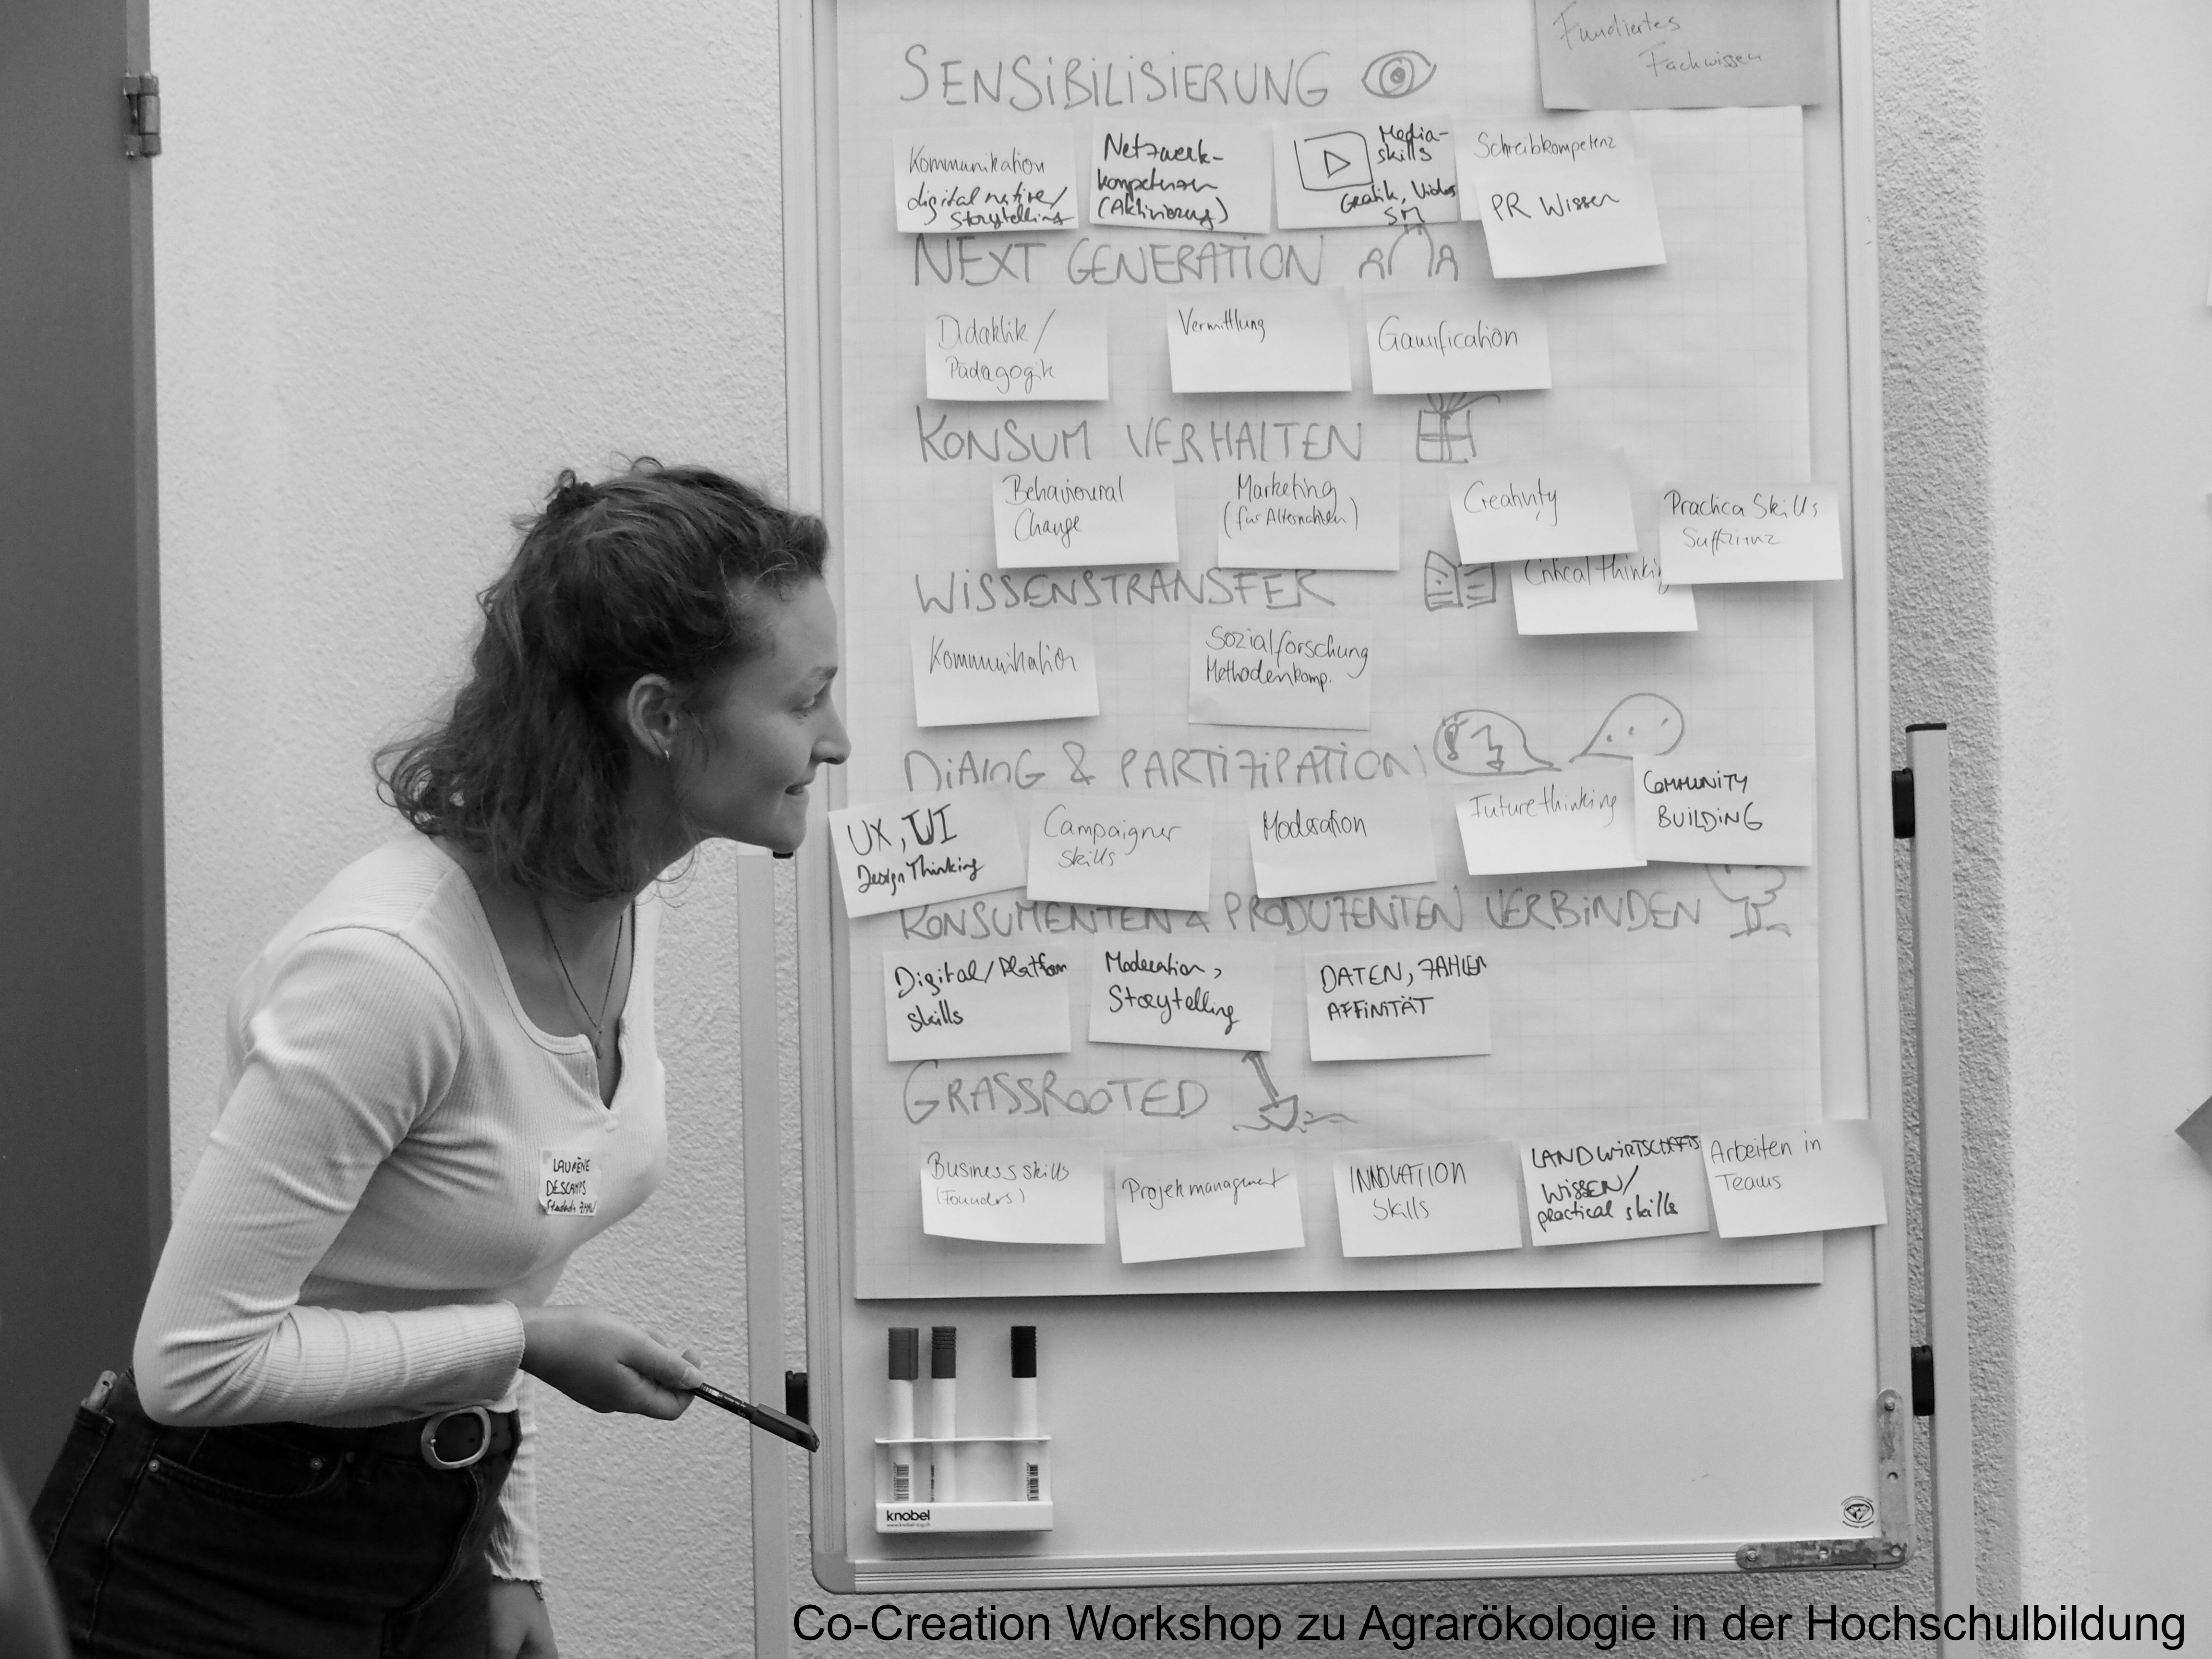 Fundiertes
Fachwissen
SENSiBiLiSiERUNG
Kommunikation
digital native/
Storytelling
Netzwerk-
kompetenzen
(Aktivierung)
Media-
skills
Grafik, Video
SM
Schreibkompetenz
PR Wissen
NEXT GENERATiON
Didaktik/
Pädagogik
Vermittlung
Gamification
KONSUM VERHALTEN
Behavioural
Change
Marketing
(für Alternativen)
Creativity
Practical Skills
Suffizienz
Critical thinking
WiSSENSTRANSFER
Kommunikation
Sozialforschung
Methodenkomp.
DiALOG & PARTiZiPATiON
UX, UI
Design Thinking
Campaigner
Skills
Moderation
Future thinking
COMMUNiTY
BUiLDiNG
KONSUMENTEN & PRODUZENTEN VERBiNDEN
Digital/Platform
skills
Moderation,
Storytelling
DATEN, ZAHLEN
AFFiNiTÄT
GRASSROOTED
Business skills
(Founders)
Projektmanagement
INNOVATION
Skills
LANDWiRTSCHAFTS
WiSSEN/
practical skills
Arbeiten in
Teams
LAURÈNE
DESCAMPS
ZHAW
knobel
Co-Creation Workshop zu Agrarökologie in der Hochschulbildung